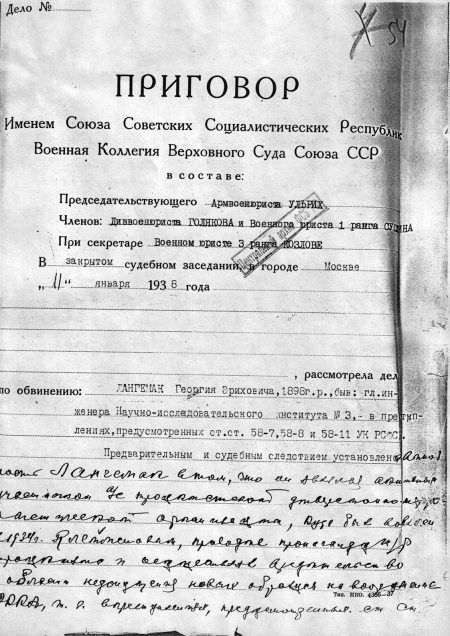 Дело №
54
ПРИГОВОР
Именем Союза Советских Социалистических Республик
Военная Коллегия Верховного Суда Союза ССР
в составе:
Председательствующего Армвоенюриста УЛЬРИХ
Членов: Диввоенюриста ГОЛЯКОВА и Военного юриста 1 ранга
При секретаре Военном юристе 3 ранга КОЗЛОВЕ
В закрытом судебном заседании, в городе Москве
„11" января 1938 года
, рассмотрела дел
по обвинению: ЛАНГЕМАК Георгия Эриховича, 1898г.р., быв: гл.ин-
женера Научно-исследовательского института №3,- в преступ-
лениях, предусмотренных ст.ст. 58-7, 58-8 и 58-11 УК РСФСР.
Предварительным и судебным следствием установлено
Лангемак в том, что он являлся активным
участником
организации, куда был вовлечен
1934г. Клейменовым, проводил
и вредительство
в области новых образцов на вооружение
РККА, т.е. в преступлениях, предусмотренных ст ст
Тип. НКО. 4366—37